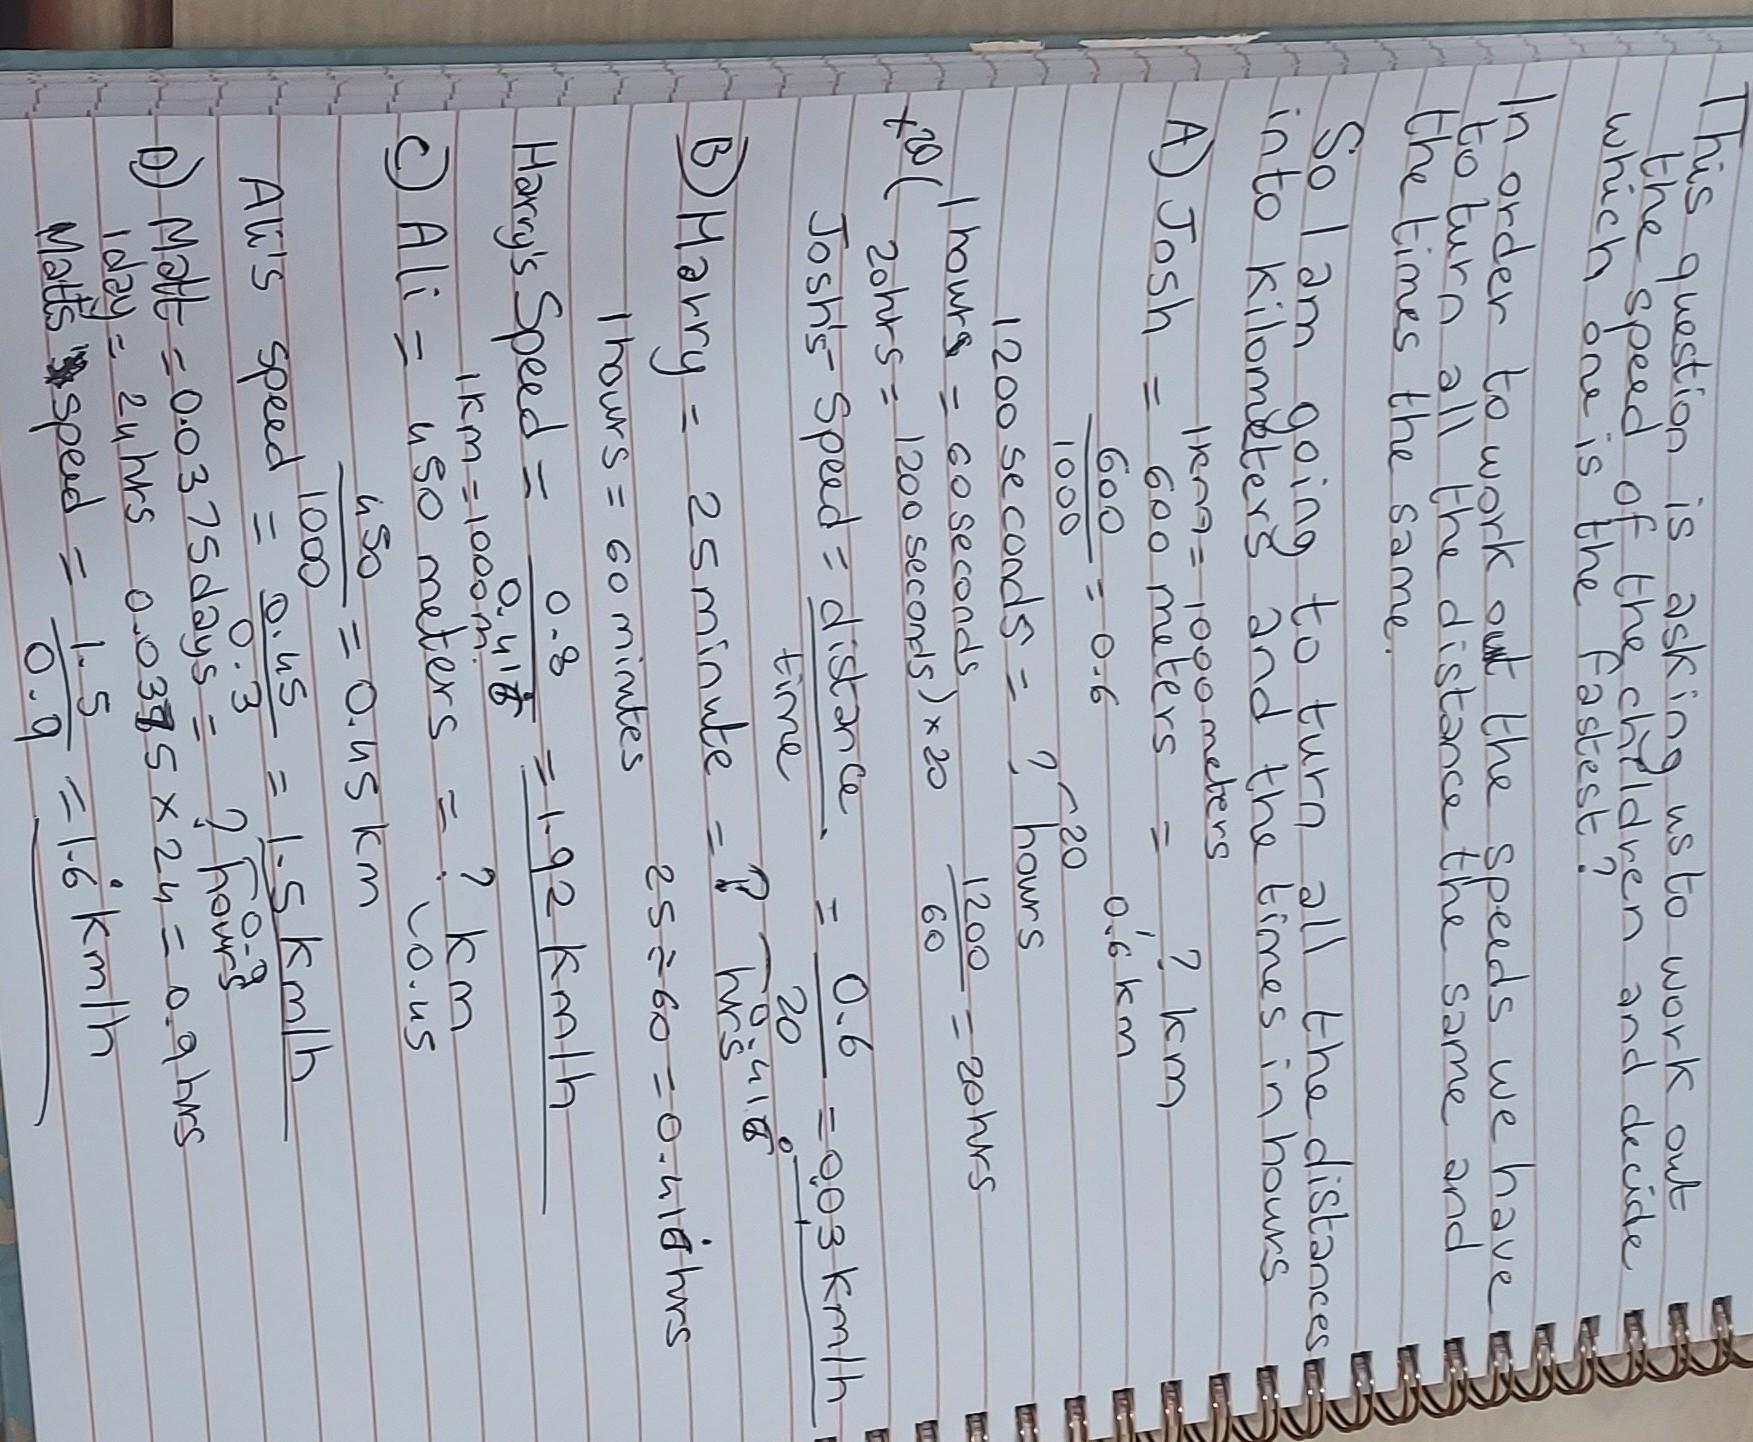 This question is asking us to work out
the speed of the children and decide
which one is the fastest?
In order to work out the speeds we have
to turn all the distance the same and
the times the same.
So I am going to turn all the distances
into kilometers and the times in hours
1km = 1000 meters
A) Josh = 600 meters = ? km
600/1000 = 0.6 0.6 km
1200 seconds = ? hours 20
1 hours = 60 seconds 1200/60 = 20hrs
×20( 20hrs = 1200 seconds) ×20
Josh's Speed = distance/time = 0.6/20 = 0.03 km/h
B) Harry = 25 minute = ? hrs 0.416̇
1 hours = 60 minutes 25 ÷ 60 = 0.416̇ hrs
Harry's Speed = 0.8/0.416̇ = 1.92 km/h
1km = 1000m
C) Ali = 450 meters = ? km 0.45
450/1000 = 0.45 km
Ali's speed = 0.45/0.3 = 1.5 km/h
D) Matt = 0.0375 days = ? hours 0.9
1day = 24hrs 0.0375 × 24 = 0.9hrs
Matt's speed = 1.5/0.9 = 1.6̇ km/h